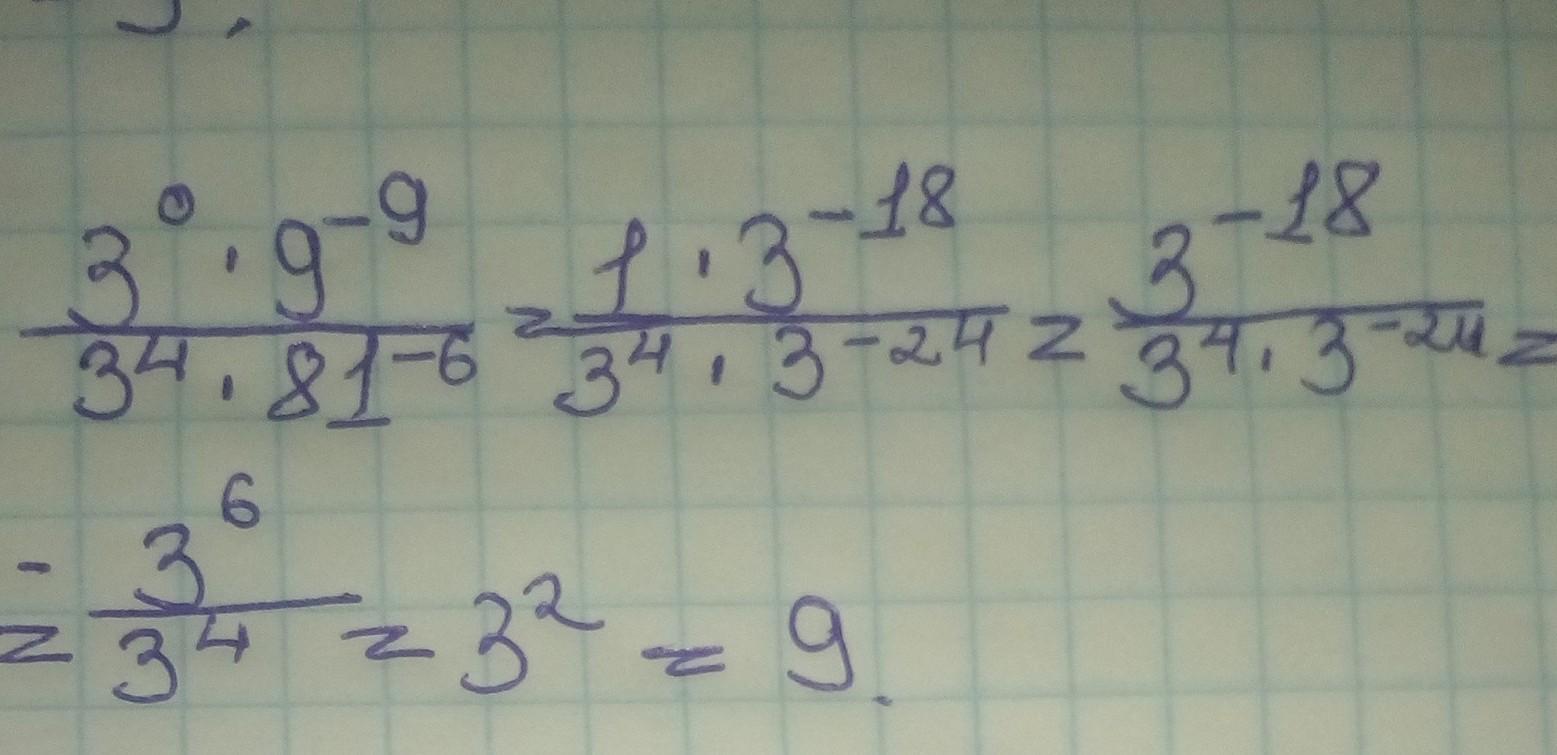 \frac{3^0 · 9^{-9}}{3^4 · 81^{-6}} = \frac{1 · 3^{-18}}{3^4 · 3^{-24}} = \frac{3^{-18}}{3^4 · 3^{-24}} =
= \frac{3^6}{3^4} = 3^2 = 9.